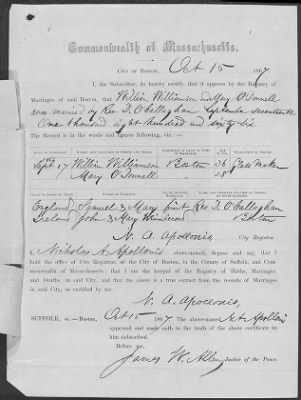 Commonwealth of Massachusetts.
CITY OF BOSTON, Oct 15 1867
I, the Subscriber, do hereby certify, that it appears by the Registry of
Marriages of said Boston, that William Williamson and Mary O'Donnell
was married by Rev T. O'Callaghan September seventeenth
One thousand eight hundred and sixty six
The Record is in the words and figures following, viz:—
Sept 17 William Williamson Boston 36 Glass Maker
Mary O'Donnell " 28
England Samuel & Mary first Rev T. O'Callaghan
Ireland John & Mary Boston
N. A. Apollonio City Registrar
I, Nicholas A. Apollonio above-named, depose and say, that I
hold the office of City Registrar, of the City of Boston, in the County of Suffolk, and Com-
monwealth of Massachusetts; that I am the keeper of the Registry of Births, Marriages,
and Deaths, in said City, and that the above is a true extract from the records of Marriages
in said City, as certified by me.
N. A. Apollonio
SUFFOLK, ss.—Boston, Oct 15 1867. The above-named N. A. Apollonio
appeared and made oath to the truth of the above certificate by him subscribed.
Before me,
James W. Allen Justice of the Peace.